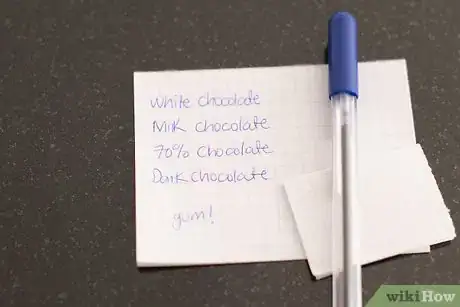 White chocolate
Milk chocolate
70% chocolate
Dark chocolate
gum!
wikiHow